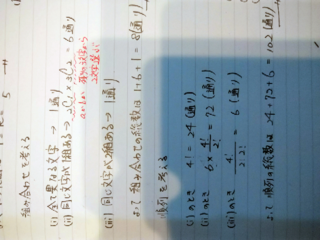 組み合わせを考える
(i) 全て異なる文字 → 1通り
(ii) 同じ文字が1組ある → 2C1 × 3C2 = 6通り
(iii) 同じ文字が2組ある → 1通り
よって 組み合わせの総数は 1+6+1 = 8(通り)
順列を考える
(i) のとき 4! = 24 (通り)
(ii) のとき 6 × 4!/2! = 72 (通り)
(iii) のとき 4!/2!2! = 6 (通り)
よって 順列の総数は 24+72+6 = 102 (通り)